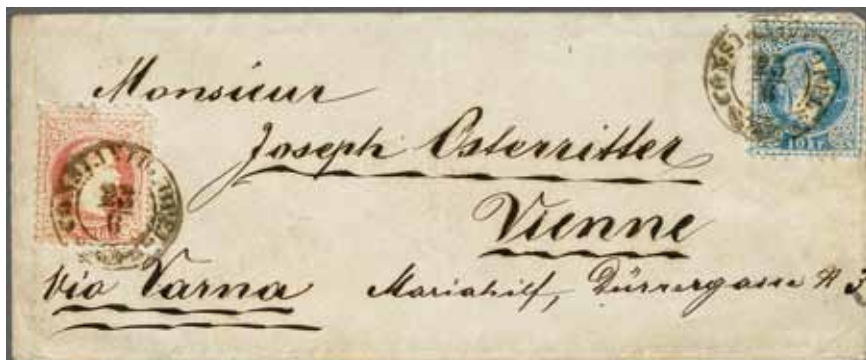 Monsieur
Joseph Osterritter
Vienne
via Varna
Mariahilf, Dürrergasse N 3
10
23
6